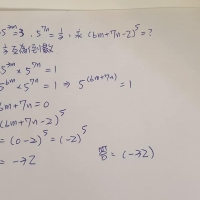 5^{3m}=3, 5^{7n}=\frac{1}{3}, 求(6m+7n-2)^5=?
互為倒數
5^{7n}=1
5^{6m}×5^{7n}=1 ⇒ 5^{(6m+7n)}=1
6m+7n=0
(6m+7n-2)^5
=(0-2)^5=(-2)^5
=-32 答=(-32)